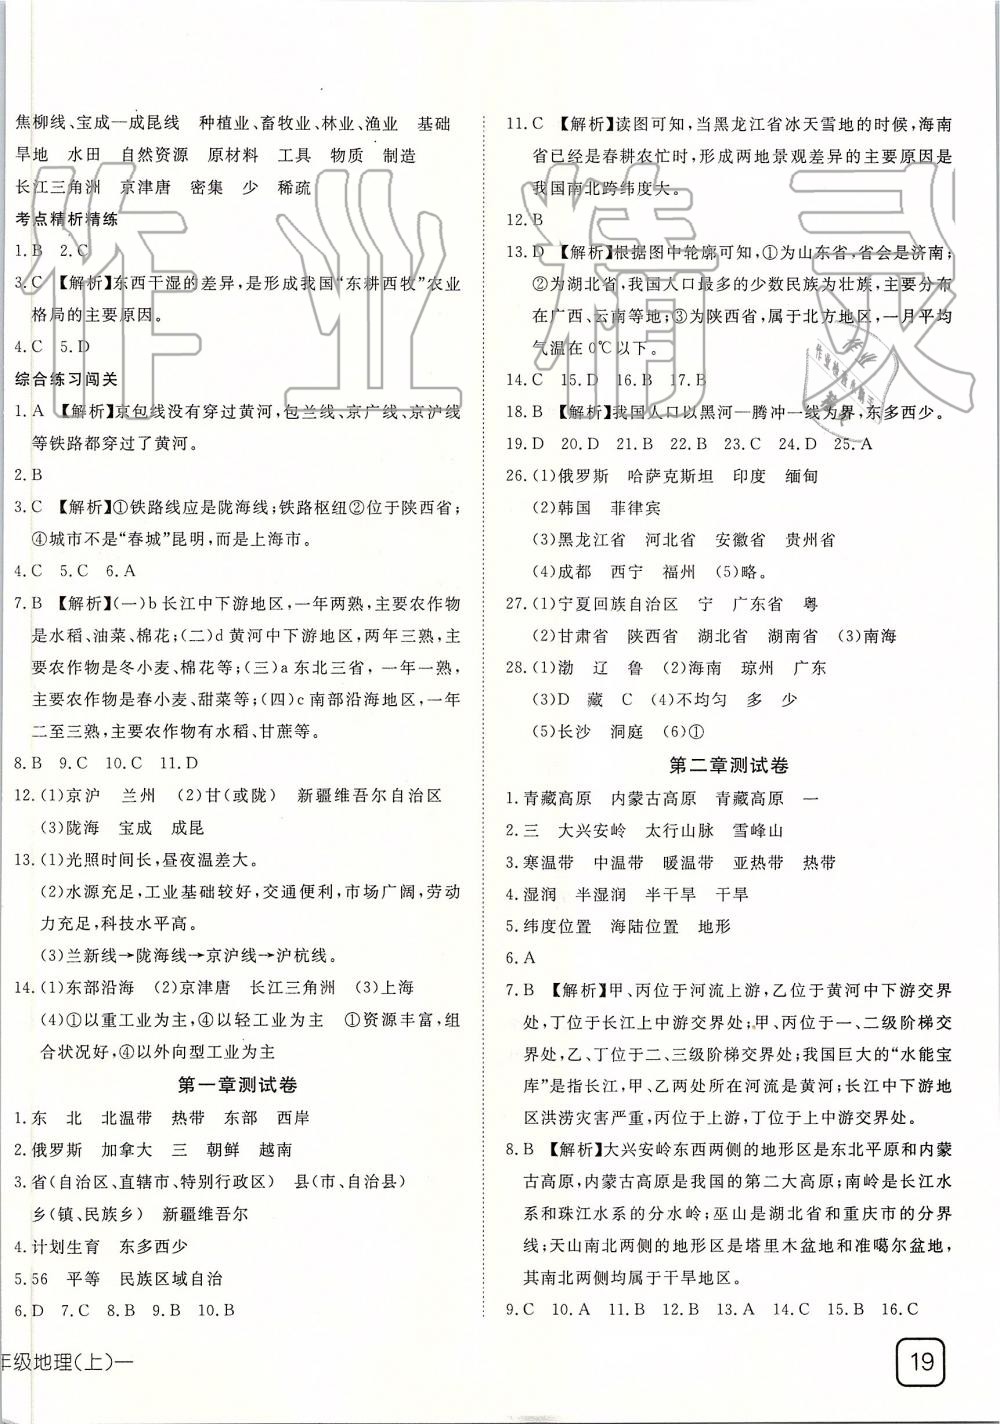 焦柳线、宝成—成昆线　种植业、畜牧业、林业、渔业　基础
旱地　水田　自然资源　原材料　工具　物质　制造
长江三角洲　京津唐　密集　少　稀疏
考点精析精练
1.B　2.C
3.C　【解析】东西干湿的差异,是形成我国“东耕西牧”农业
格局的主要原因。
4.C　5.D
综合练习闯关
1.A　【解析】京包线没有穿过黄河,包兰线、京广线、京沪线
等铁路都穿过了黄河。
2.B
3.C　【解析】①铁路线应是陇海线;铁路枢纽②位于陕西省;
④城市不是“春城”昆明,而是上海市。
4.C　5.C　6.A
7.B　【解析】(一)b长江中下游地区,一年两熟,主要农作物
是水稻、油菜、棉花;(二)d黄河中下游地区,两年三熟,主
要农作物是冬小麦、棉花等;(三)a东北三省,一年一熟,
主要农作物是春小麦、甜菜等;(四)c南部沿海地区,一年
二至三熟,主要农作物有水稻、甘蔗等。
8.B　9.C　10.C　11.D
12.(1)京沪　兰州　(2)甘(或陇)　新疆维吾尔自治区
(3)陇海　宝成　成昆
13.(1)光照时间长,昼夜温差大。
(2)水源充足,工业基础较好,交通便利,市场广阔,劳动
力充足,科技水平高。
(3)兰新线→陇海线→京沪线→沪杭线。
14.(1)东部沿海　(2)京津唐　长江三角洲　(3)上海
(4)①以重工业为主,④以轻工业为主　①资源丰富,组
合状况好,④以外向型工业为主
第一章测试卷
1.东　北　北温带　热带　东部　西岸
2.俄罗斯　加拿大　三　朝鲜　越南
3.省(自治区、直辖市、特别行政区)　县(市、自治县)
乡(镇、民族乡)　新疆维吾尔
4.计划生育　东多西少
5.56　平等　民族区域自治
6.D　7.C　8.B　9.B　10.B
年级地理(上)—
11.C　【解析】读图可知,当黑龙江省冰天雪地的时候,海南
省已经是春耕农忙时,形成两地景观差异的主要原因是
我国南北跨纬度大。
12.B
13.D　【解析】根据图中轮廓可知,①为山东省,省会是济南;
②为湖北省,我国人口最多的少数民族为壮族,主要分布
在广西、云南等地;③为陕西省,属于北方地区,一月平均
气温在0℃以下。
14.C　15.D　16.B　17.B
18.B　【解析】我国人口以黑河—腾冲一线为界,东多西少。
19.D　20.D　21.B　22.B　23.C　24.D　25.A
26.(1)俄罗斯　哈萨克斯坦　印度　缅甸
(2)韩国　菲律宾
(3)黑龙江省　河北省　安徽省　贵州省
(4)成都　西宁　福州　(5)略。
27.(1)宁夏回族自治区　宁　广东省　粤
(2)甘肃省　陕西省　湖北省　湖南省　(3)南海
28.(1)渤　辽　鲁　(2)海南　琼州　广东
(3)D　藏　C　(4)不均匀　多　少
(5)长沙　洞庭　(6)①
第二章测试卷
1.青藏高原　内蒙古高原　青藏高原　一
2.三　大兴安岭　太行山脉　雪峰山
3.寒温带　中温带　暖温带　亚热带　热带
4.湿润　半湿润　半干旱　干旱
5.纬度位置　海陆位置　地形
6.A
7.B　【解析】甲、丙位于河流上游,乙位于黄河中下游交界
处,丁位于长江上中游交界处;甲、丙位于一、二级阶梯交
界处,乙、丁位于二、三级阶梯交界处;我国巨大的“水能宝
库”是指长江,甲、乙两处所在河流是黄河;长江中下游地
区洪涝灾害严重,丙位于上游,丁位于上中游交界处。
8.B　【解析】大兴安岭东西两侧的地形区是东北平原和内蒙
古高原,内蒙古高原是我国的第二大高原;南岭是长江水
系和珠江水系的分水岭;巫山是湖北省和重庆市的分界
线;天山南北两侧的地形区是塔里木盆地和准噶尔盆地,
其南北两侧均属于干旱地区。
9.C　10.A　11.B　12.B　13.A　14.A　15.B　16.C
19
作业精灵